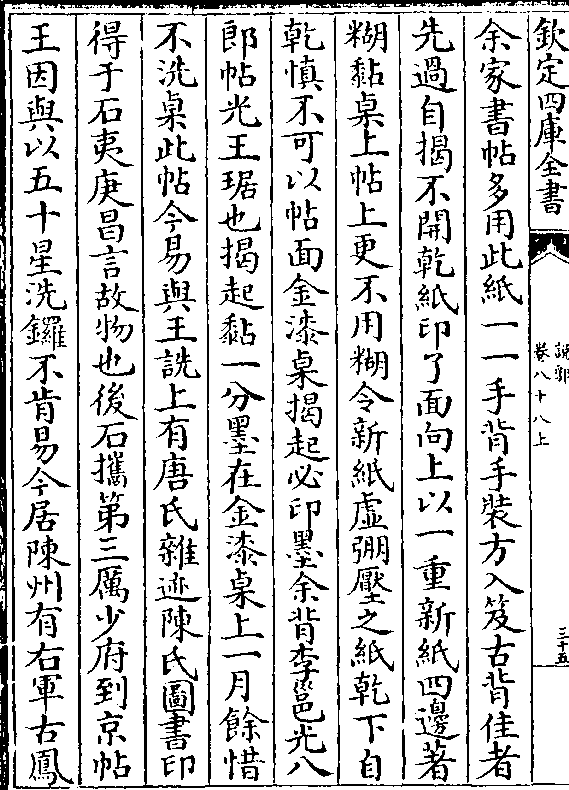 欽定四庫全書
說郛
卷八十八上
三十五
余家書帖多用此紙一一手背手裝方入笈古背佳者
先過自揭不開乾紙印了面向上以一重新紙四邊著
糊黏桌上帖上更不用糊令新紙虛弸壓之紙乾下自
乾慎不可以帖面金漆桌揭起必印墨余背李邕光八
郎帖光王琚也揭起黏一分墨在金漆桌上一月餘惜
不洗桌此帖今易與王詵上有唐氏雜迹陳氏圖書印
得于石夷庚昌言故物也後石攜第三厲少府到京帖
王因與以五十星洗鑼不肯易今居陳州有右軍古鳳